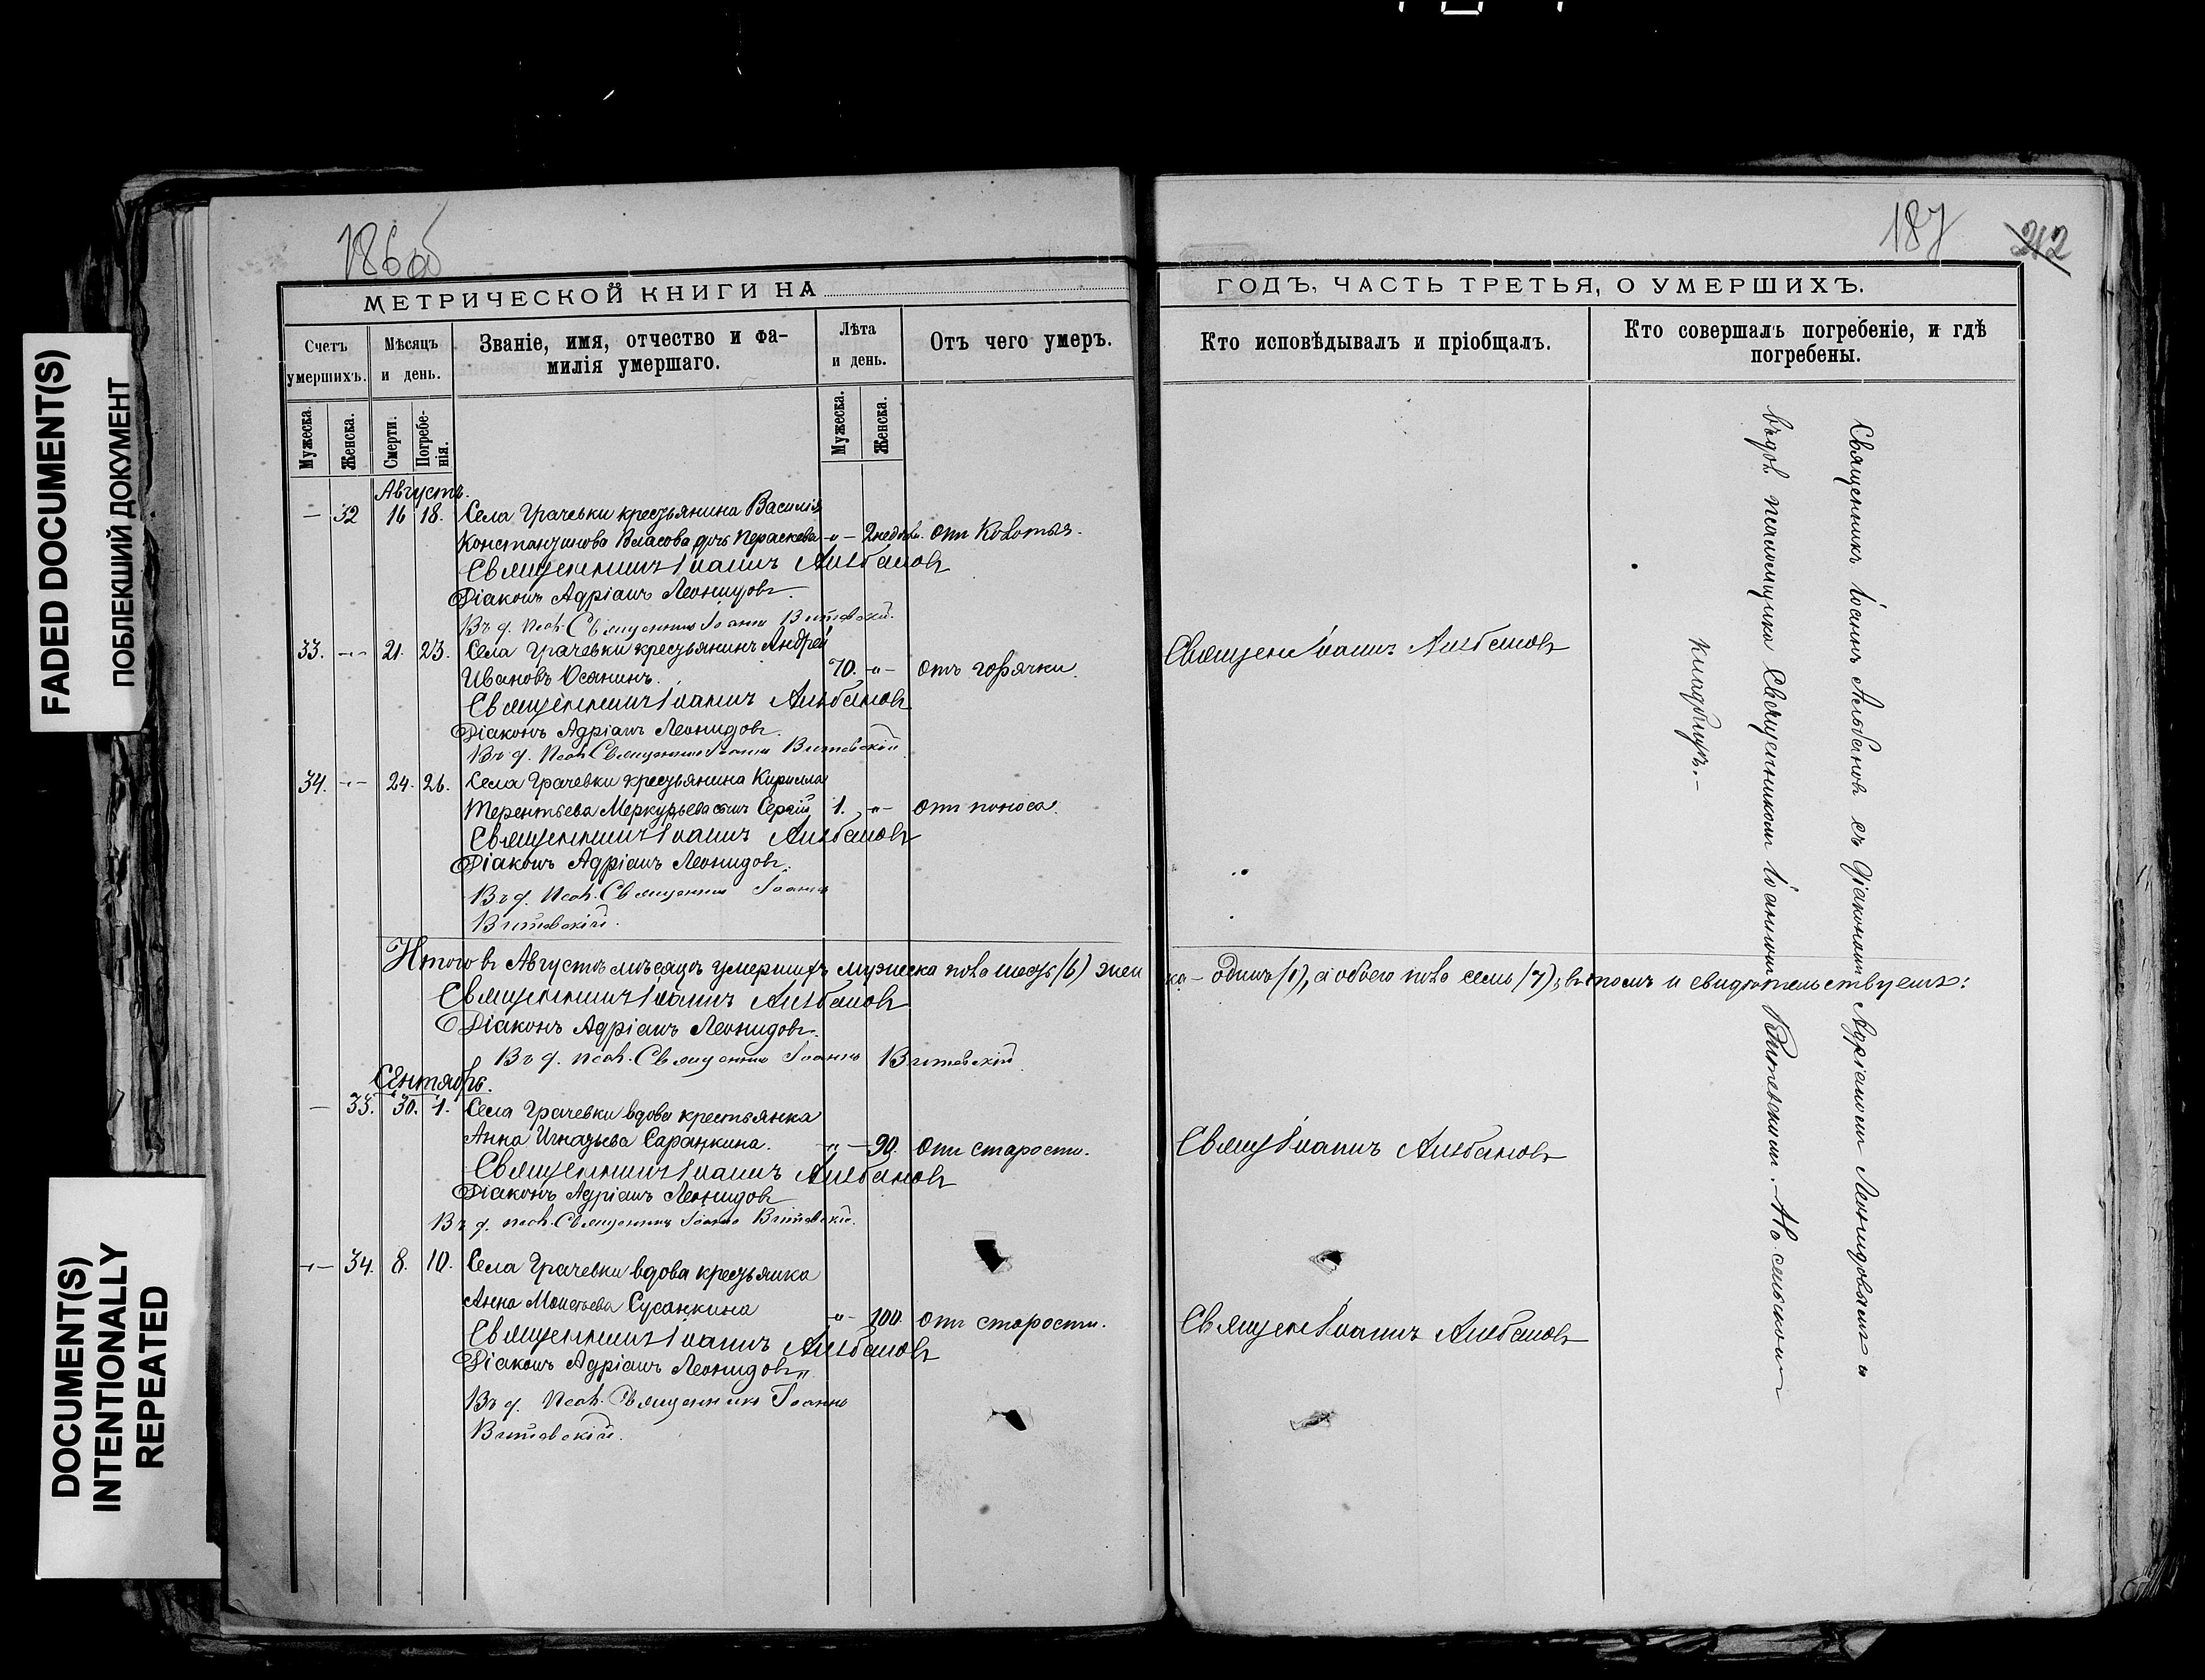 FADED DOCUMENT(S)
ПОБЛЕКШИЙ ДОКУМЕНТ
DOCUMENT(S)
INTENTIONALLY
REPEATED
186об
МЕТРИЧЕСКОЙ КНИГИ НА
Счетъ умершихъ.
Мѣсяцъ и день.
Званіе, имя, отчество и фа-
милія умершаго.
Лѣта и день.
Отъ чего умеръ.
Мужеска.
Женска.
Смерти.
Погребе-
нія.
Мужеска.
Женска.
Августъ.
— 32 16 18. Села Грачевки крестьянина Василія
Константинова Власова дочь Параскева -"- 2 недѣли. отъ Колотья.
Священникъ Іоаннъ Альбановъ
Діаконъ Адріанъ Леонидовъ
Въ д. псал. Священникъ Іоаннъ Витевскій.
33. -"- 21. 23. Села Грачевки крестьянинъ Андрей
Ивановъ Осянинъ. 70. -"- Отъ горячки.
Священникъ Іоаннъ Альбановъ
Діаконъ Адріанъ Леонидовъ.
Въ д. псал. Священникъ Іоаннъ Витевскій
34. -"- 24. 26. Села Грачевки крестьянина Кирилла
Терентьева Меркурьева сынъ Сергій 1. -"- Отъ поноса.
Священникъ Іоаннъ Альбановъ
Діаконъ Адріанъ Леонидовъ.
Въ д. псал. Священникъ Іоаннъ
Витевскій.
Итого въ Августѣ мѣсяцѣ умершихъ мужеска пола шесть (6) жен
Священникъ Іоаннъ Альбановъ
Діаконъ Адріанъ Леонидовъ.
Въ д. псал. Священникъ Іоаннъ Витевскій
Сентябрь.
— 33. 30. 1. Села Грачевки вдова крестьянка
Анна Игнатьева Саранкина. -"- 90. Отъ старости.
Священникъ Іоаннъ Альбановъ
Діаконъ Адріанъ Леонидовъ
Въ д. псал. Священникъ Іоаннъ Витевскій.
-"- 34. 8. 10. Села Грачевки вдова крестьянка
Анна Моисѣева Сусанкина -"- 100. Отъ старости.
Священникъ Іоаннъ Альбановъ
Діаконъ Адріанъ Леонидовъ
Въ д. псал. Священникъ Іоаннъ
Витевскій.
187
212
ГОДЪ, ЧАСТЬ ТРЕТЬЯ, О УМЕРШИХЪ.
Кто исповѣдывалъ и пріобщалъ.
Кто совершалъ погребеніе, и гдѣ
погребены.
Священ Іоаннъ Альбановъ
ка - одинъ (1), а обоего пола семь (7); въ томъ и свидѣтельствуемъ:
Свящ Іоаннъ Альбановъ
Священ Іоаннъ Альбановъ
Священникъ Іоаннъ Альбановъ съ Діакономъ Адріаномъ Леонидовымъ и
въ д. псаломщика Священникомъ Іоанномъ Витевскимъ. На сельскомъ
кладбищѣ.-